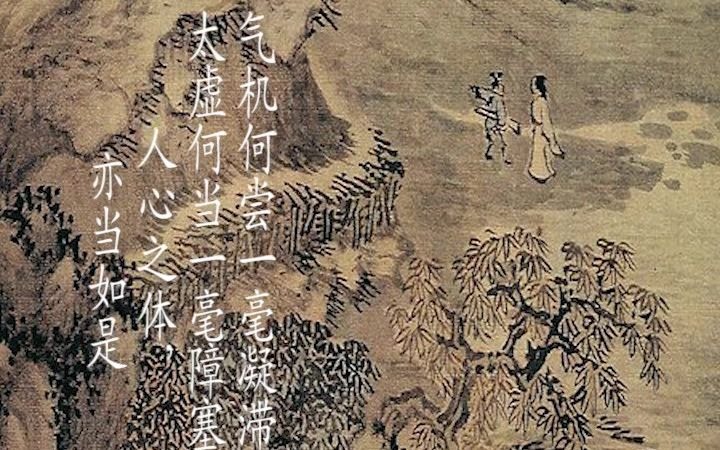 气机何尝一毫凝滞
太虚何当一毫障塞
人心之体，
亦当如是